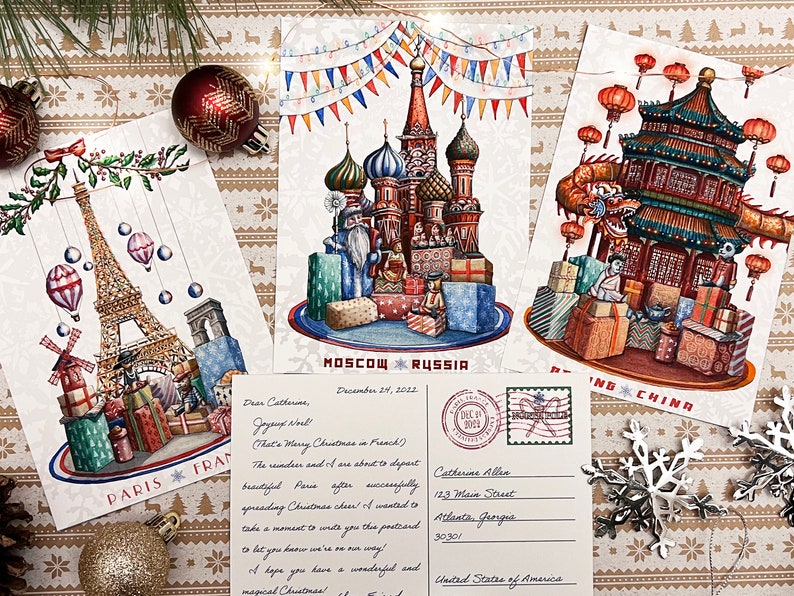 MOSCOW RUSSIA
CHINA
PARIS
December 24, 2022
Dear Catherine,
Joyeux Noel!
(That's Merry Christmas in French!)
The reindeer and I are about to depart
beautiful Paris after successfully
spreading Christmas cheer! I wanted to
take a moment to write you this postcard
to let you know we're on our way!
I hope you have a wonderful and
magical Christmas!
DEC 24
2022
Catherine Allen
123 Main Street
Atlanta, Georgia
30301
United States of America